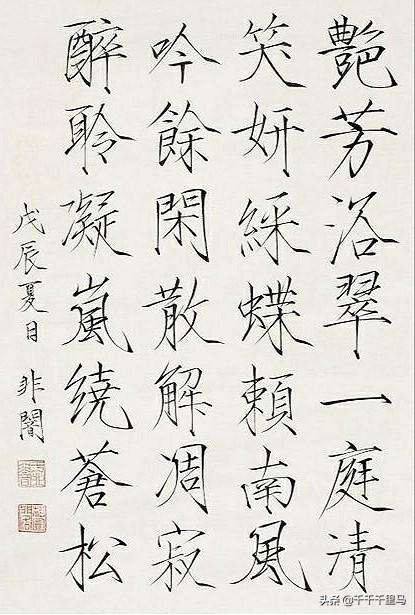 艷芳浴翠一庭清
笑妍綵蝶頼南風
吟餘閑散解凋寂
醉聆凝嵐繞蒼松
戊辰夏日 非闇
头条@千千千里马